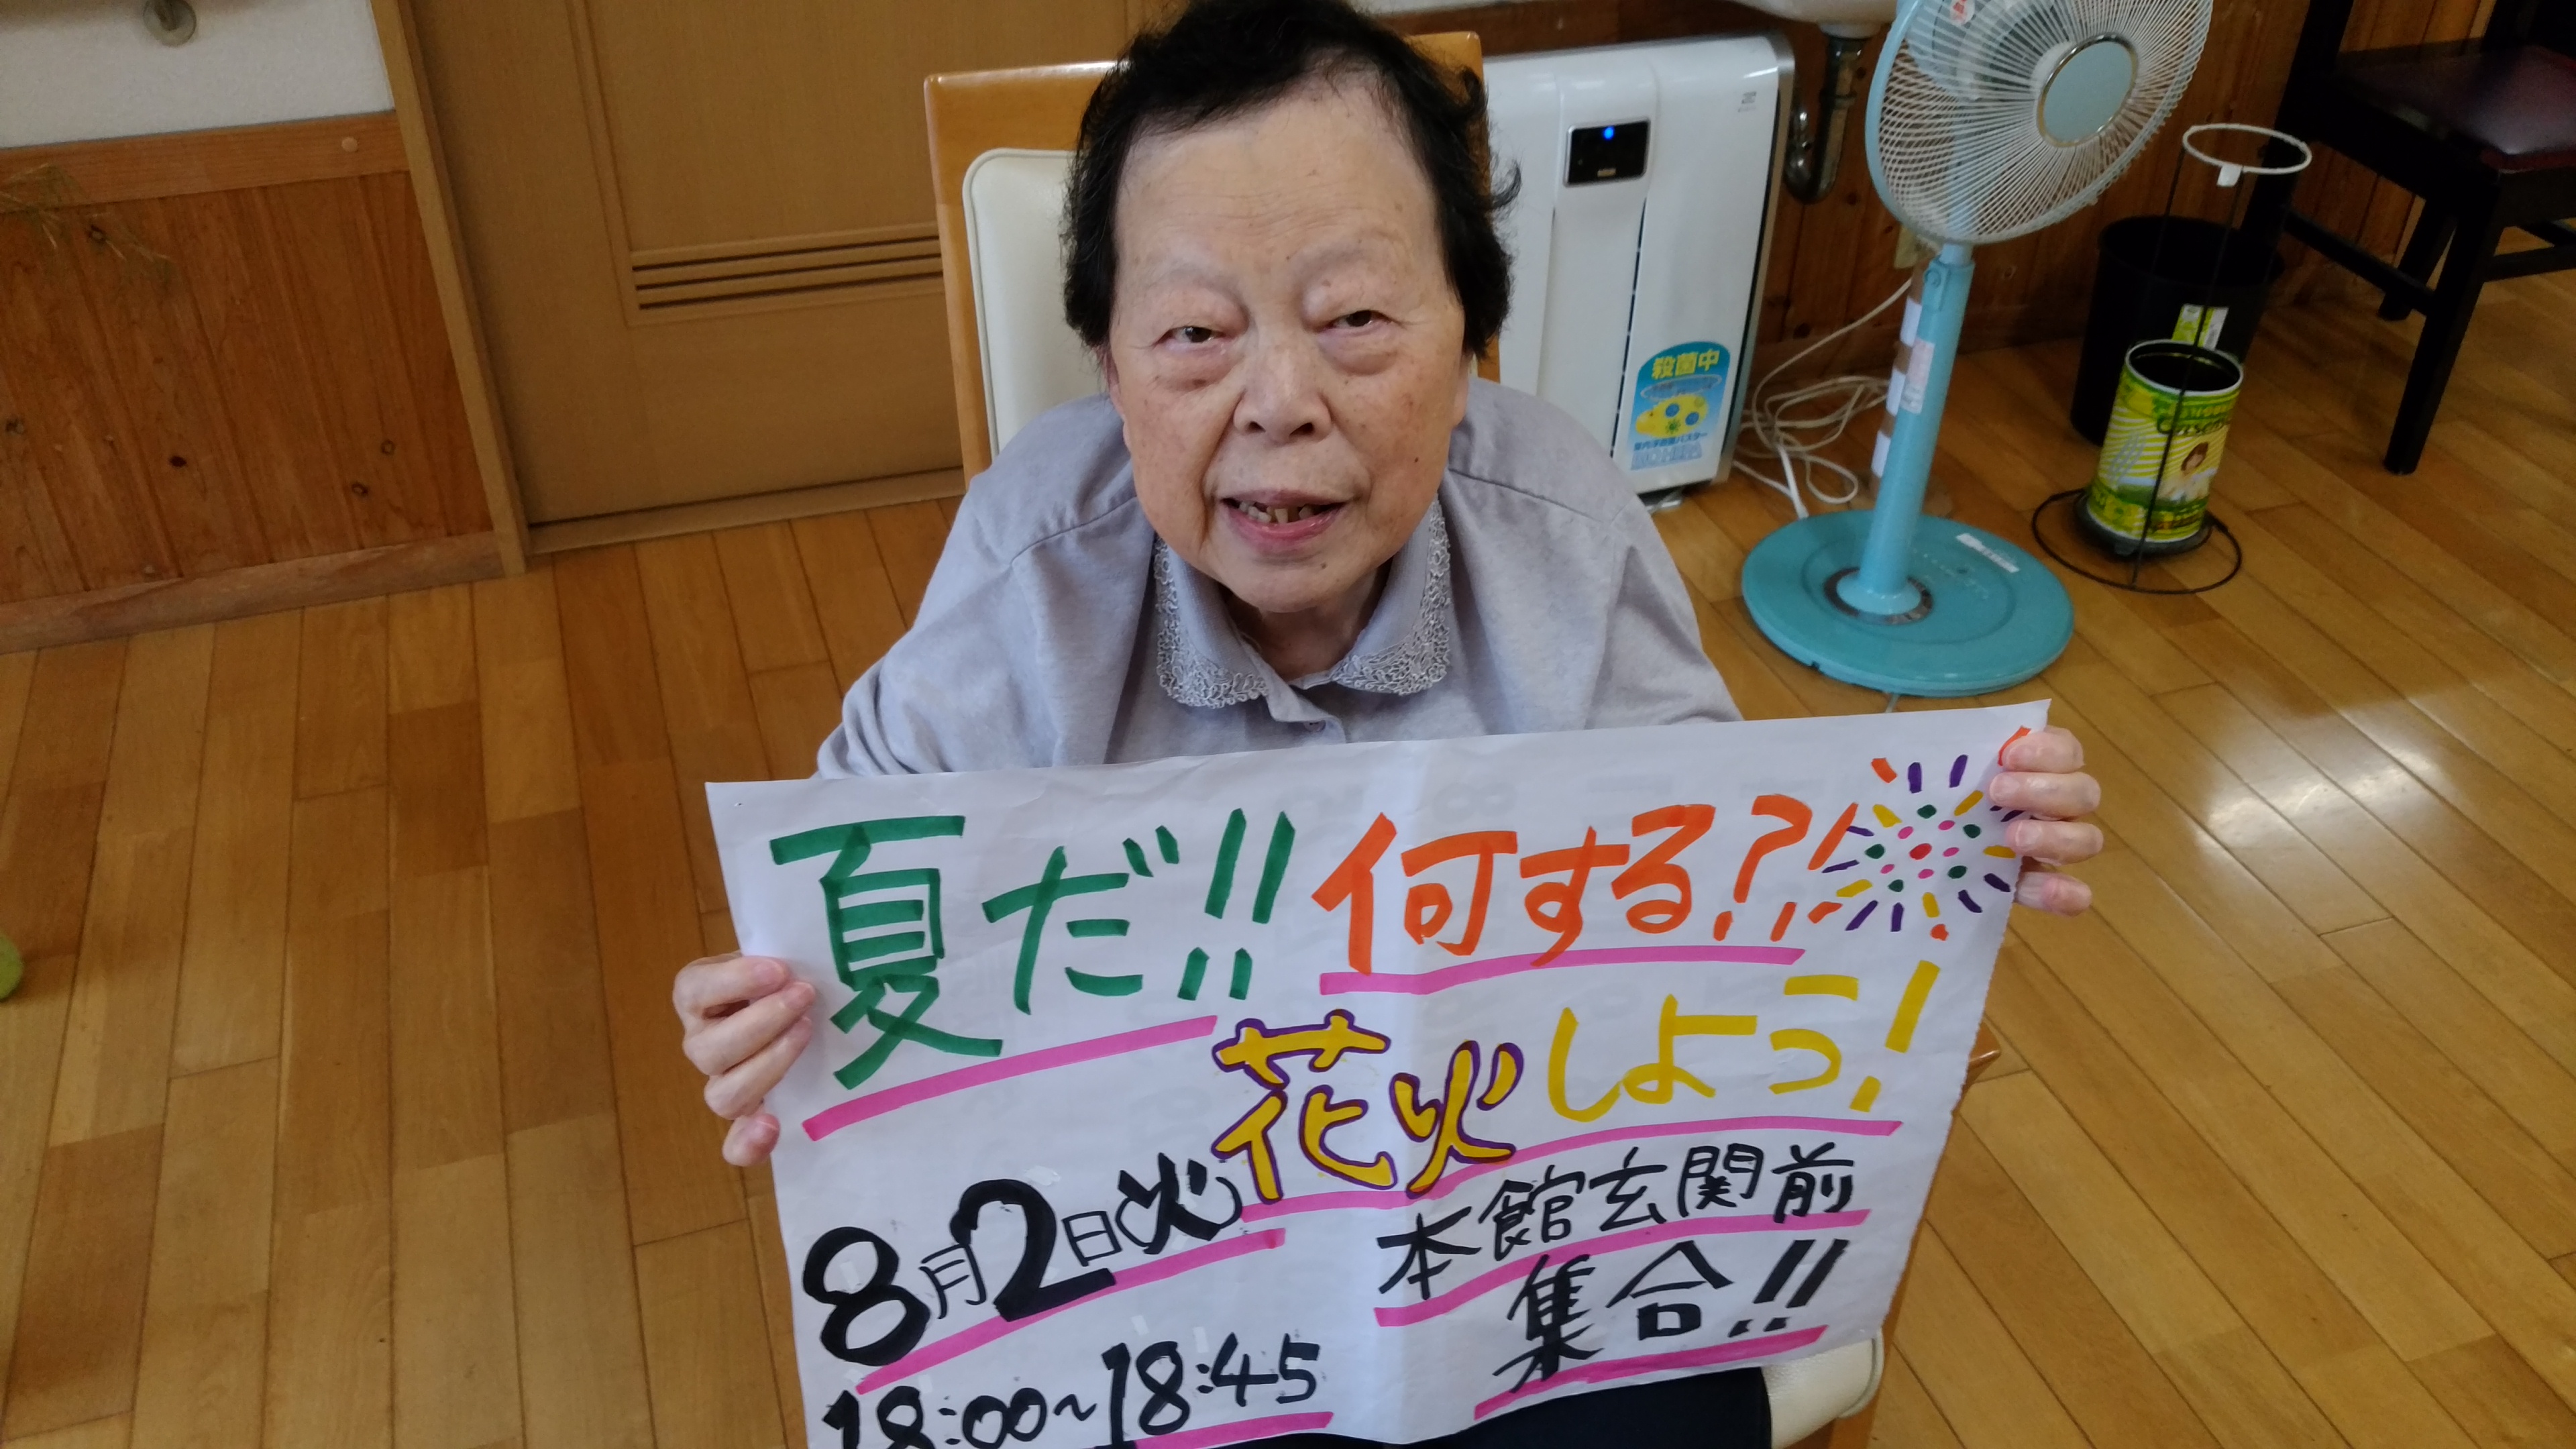 殺菌中
夏だ!! 何する?!
花火しよう!
8月2日(火)
18:00~18:45
本館玄関前
集合!!